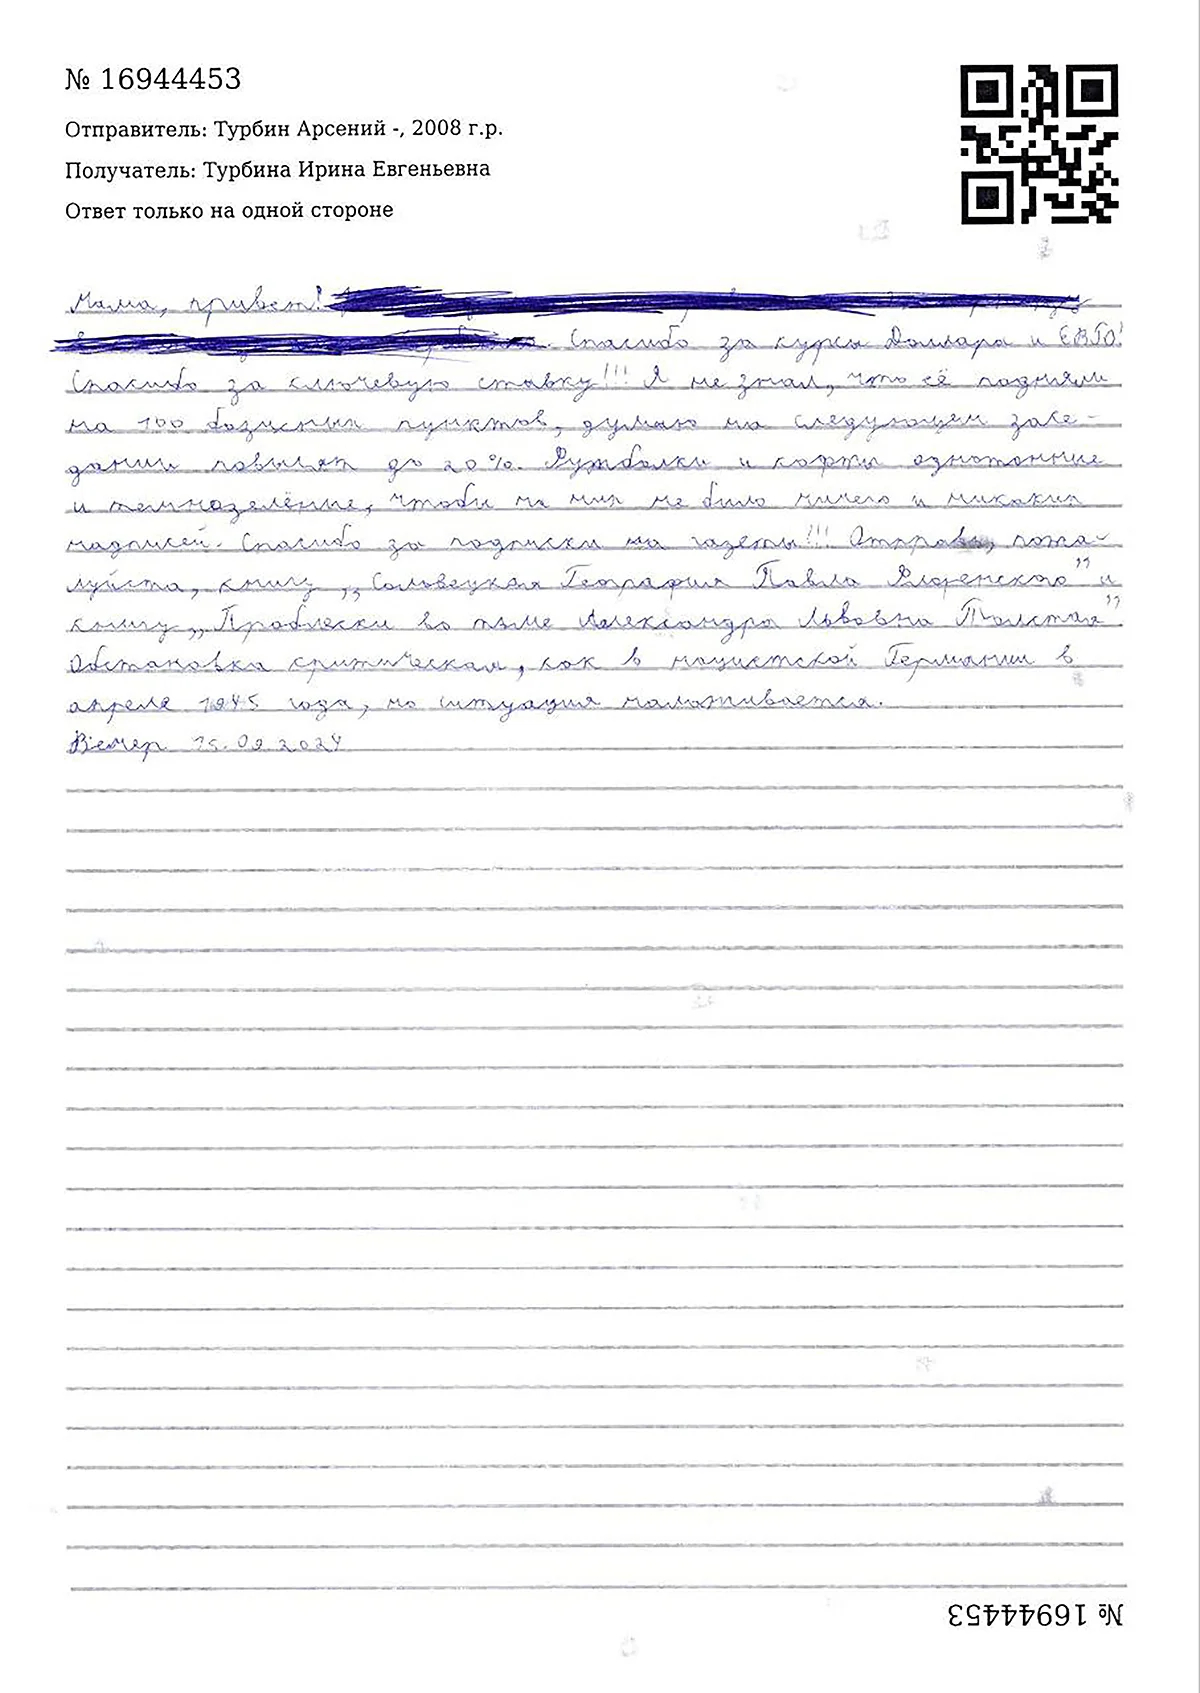 № 16944453
Отправитель: Турбин Арсений -, 2008 г.р.
Получатель: Турбина Ирина Евгеньевна
Ответ только на одной стороне
Мама, привет!
Спасибо за курсы Доллара и ЕВРО!
Спасибо за ключевую ставку!!! Я не знал, что её подняли
на 100 базисных пунктов, думаю на следующем засе-
дании повысят до 20%. Футболки и кофты однотонные
и темнозелёные, чтобы на них не было ничего и никаких
надписей. Спасибо за подписки на газеты!!! Отправь, пожа-
луйста, книгу „Соловецкая География Павла Флоренского” и
книгу „Проблески во тьме Александра Львовна Толстая”.
Обстановка критическая, как в нацистской Германии в
апреле 1945 года, но ситуация налаживается.
Вечер 15.09.2024
№ 16944453